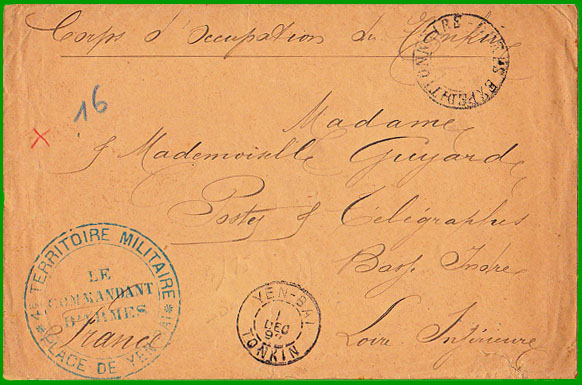 Corps d'Occupation du Tonkin
CORPS EXPEDITIONNAIRE
16
Madame
& Mademoiselle Guyard
Postes & Télégraphes
Basse Indre
Loire Inférieure
France
4e TERRITOIRE MILITAIRE
LE
COMMANDANT
D'ARMES
* PLACE DE YEN-BAI *
YEN-BAI
1
DEC
TONKIN